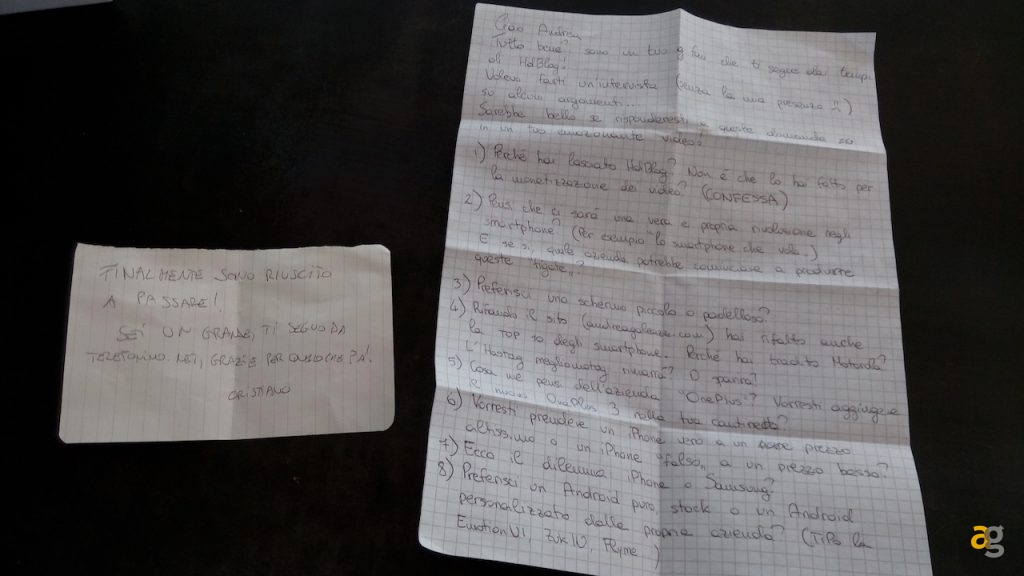 FINALMENTE SONO RIUSCITO
A PASSARE!
SEI UN GRANDE, TI SEGUO DA
TELEFONINO.NET, GRAZIE PER QUELLO CHE FAI.
CRISTIANO
Ciao Andrea
Tutto bene? sono un tuo fan che ti segue dai tempi
di HdBlog!
Volevo farti un'intervista (senza la mia presenza !!)
su alcuni argomenti...
Sarebbe bello se rispondessi a queste domande
in un tuo emozionante video:
1) Perché hai lasciato HdBlog? Non è che lo hai fatto per
la monetizzazione dei video? (CONFESSA)
2) Pensi che ci sarà una vera e propria rivoluzione negli
smartphone? (Per esempio lo smartphone che vola..)
E se sì, quale azienda potrebbe cominciare a produrre
queste "figate"?
3) Preferisci uno schermo piccolo o padelloso?
4) Rifando il sito (andreagaleazzi.com) hai rifatto anche
la top 10 degli smartphone. Perché hai tradito Motorola?
L'Hastag megliounmotog rimarrà? O sparirà?
5) Cosa ne pensi dell'azienda "OnePlus"? Vorresti aggiungere
il nuovo OnePlus 3 nella tua cantinetta?
6) Vorresti prendere un iPhone vero a un prezzo
altissimo o un iPhone "falso" a un prezzo basso?
7) Ecco il dilemma iPhone o Samsung?
8) Preferisci un Android puro stock o un Android
personalizzato dalla propria azienda? (Tipo la
EmotionUI, ZUK UI, Flyme )
ag